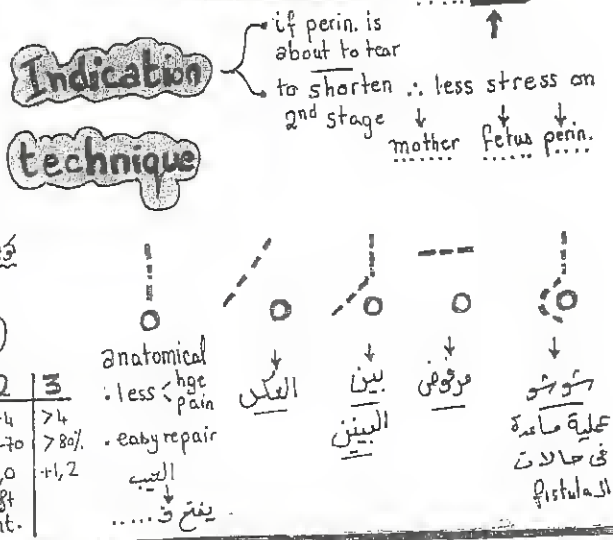 Indication
if perin. is
about to tear
to shorten ∴ less stress on
2nd stage
mother fetus perin.
technique
anatomical
. less < hge
pain
. easy repair
العيب
يفتح ف .....
العكس
بين
البينين
مرفوض
شوشو
عملية مساعدة
فى حالات
الـ fistula
2 3
>4
70 >80%
,0 +1,2